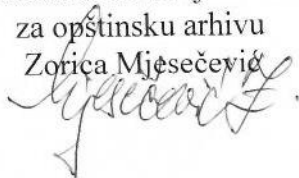 za opštinsku arhivu
Zorica Mjesečević
Mjesečević Z.